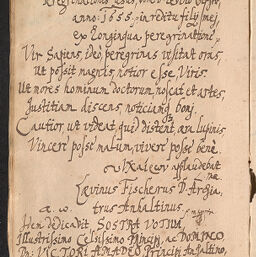 anno. 1655. in reditu filij mei,
ex longinqua peregrinatione,
Vir Sapiens, ideo peregrinas visitat oras,
Ut possit magnis, notior esse, Viris.
Ut mores hominum doctorum, noscat et artes,
Justitiam discens, notitiamq3 boni
Cautior ut videat, quid distent æra lupinis
Vincere posse malum, vivere posse bene.
applaudebat
Lævinus Fischerus D. Archia-
trus Anhaltinus.
Hem dedicavit SOSTRA VOTIVA,
Illustrissimo Celsissimo Principi, ac DOMINO
Dn: VICTORI AMADEO Principi Anhaltino,